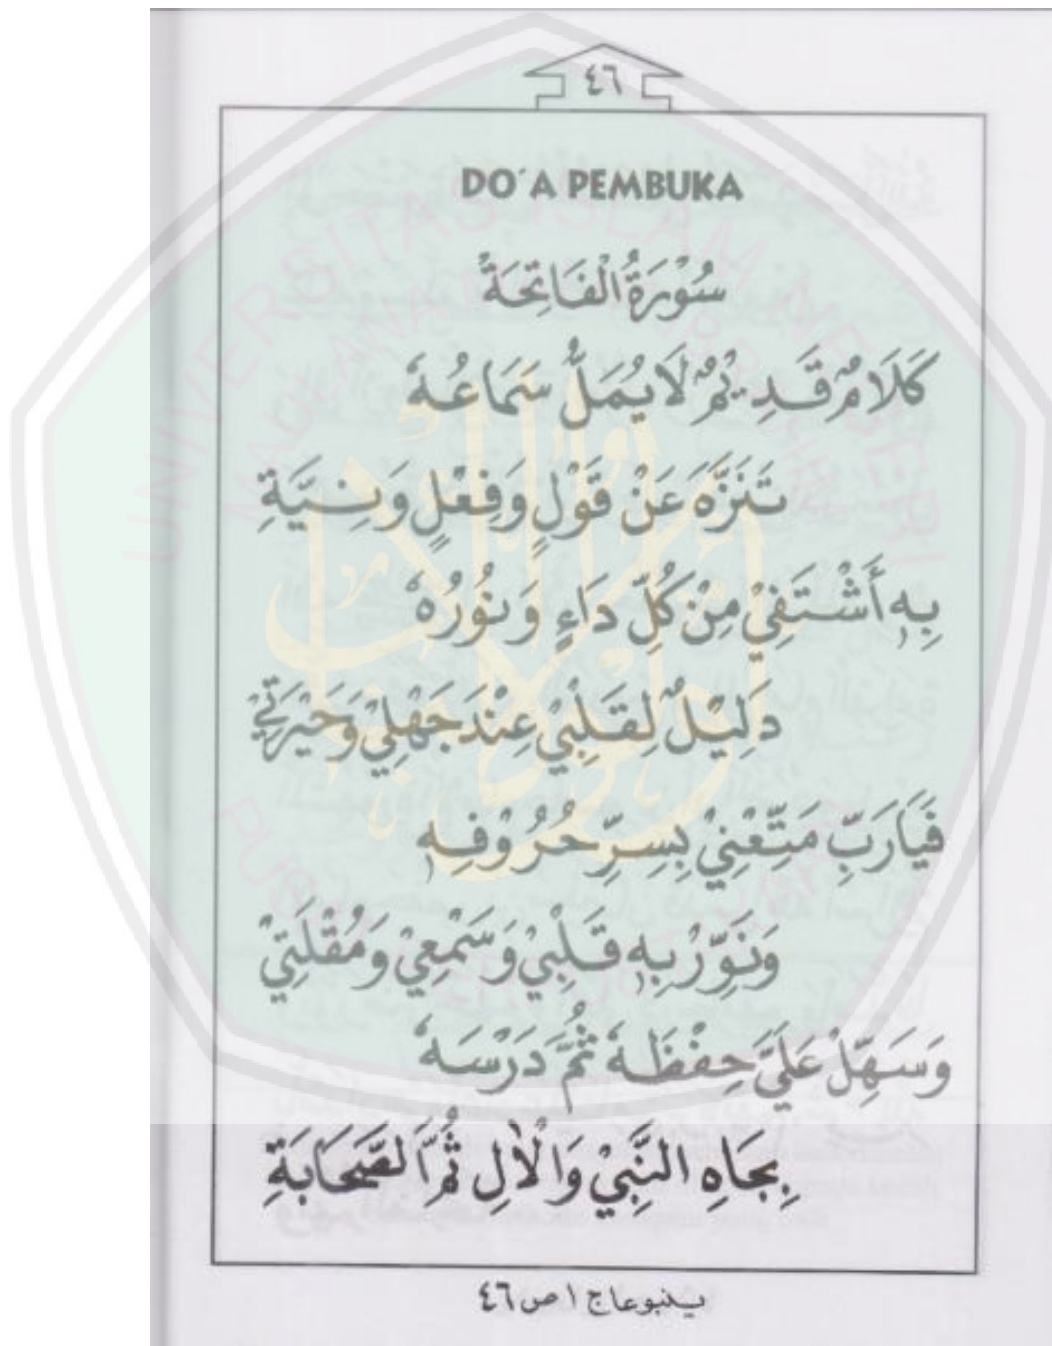 ٤٦
DO´A PEMBUKA
سُوْرَةُ الْفَاتِحَةْ
كَلَامٌ قَدِيْمٌ لَا يُمَلُّ سَمَاعُهُ
تَنَزَّهَ عَنْ قَوْلٍ وَفِعْلٍ وَنِيَّةِ
بِهِ أَشْتَفِيْ مِنْ كُلِّ دَاءٍ وَنُوْرُهُ
دَلِيْلٌ لِقَلْبِيْ عِنْدَ جَهْلِيْ وَحَيْرَتِيْ
فَيَارَبِّ مَتِّعْنِيْ بِسِرِّ حُرُوْفِهِ
وَنَوِّرْ بِهِ قَلْبِيْ وَسَمْعِيْ وَمُقْلَتِيْ
وَسَهِّلْ عَلَيَّ حِفْظَهُ ثُمَّ دَرْسَهُ
بِجَاهِ النَّبِيْ وَالْاٰلِ ثُمَّ الصَّحَابَةِ
ينبوعاج ١ ص ٤٦